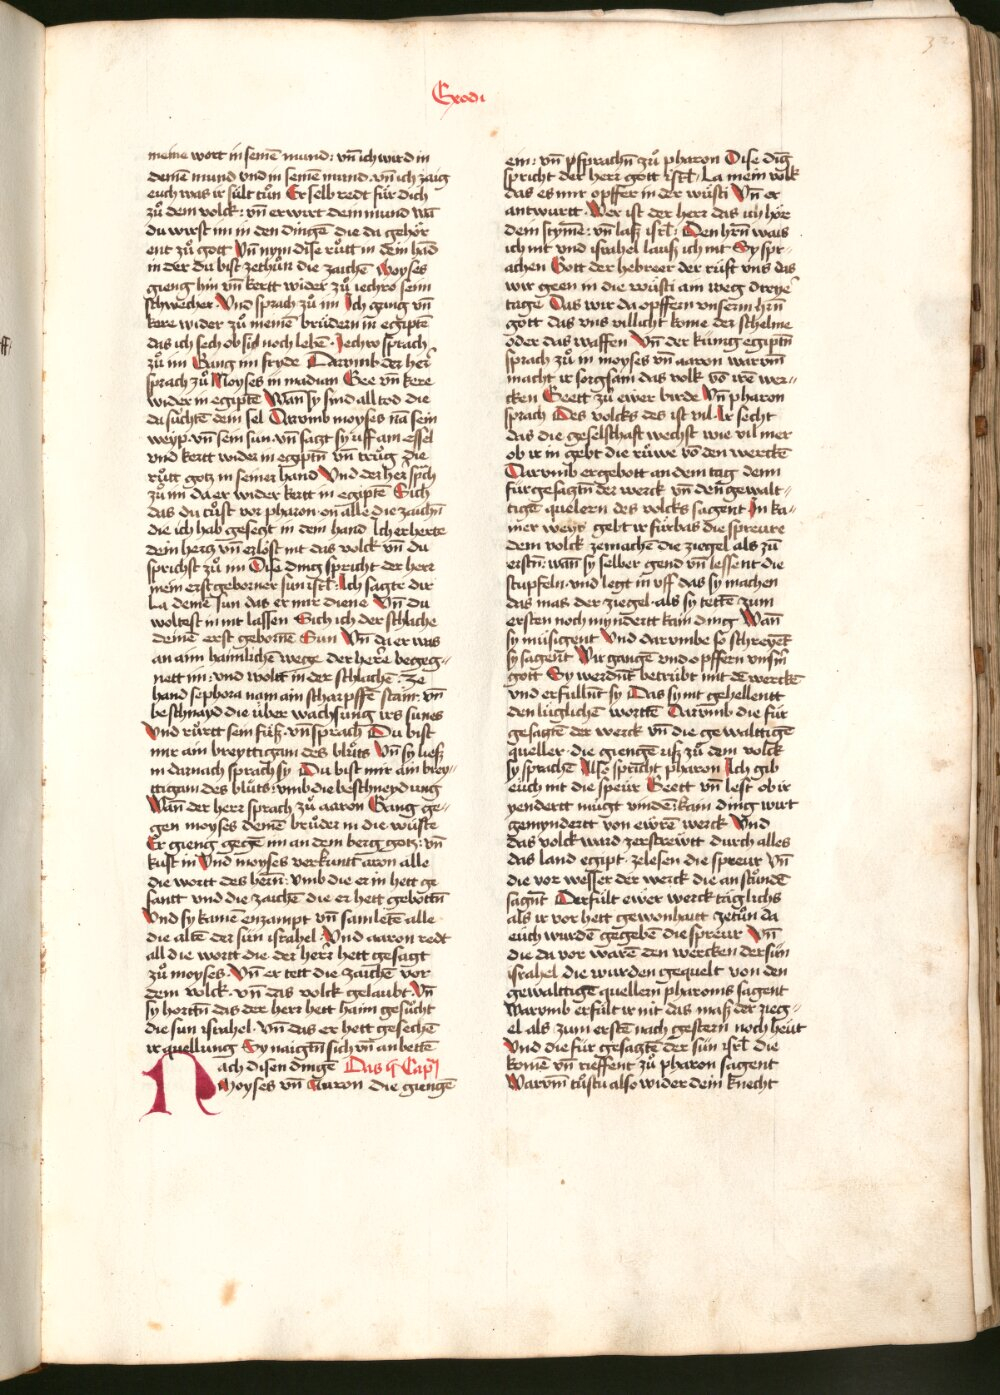 32.
Exodi
meine wort in seinē mund: vn̄ ich wird in
deinē mund vnd in seinē mund. vn̄ ich zaig
euch was ir sült tůn Er selb redt für dich
zů dem volck: vn̄ er wirt dein mund wā
du wirst im in den dingē die da gehör
ent zů gott Vn̄ nym dise růtt in dein hād
in der du bist zethůn die zaichē Moyses
gieng hin vn̄ kertt wider zů iechro seim
schwecher. Vnd sprach zů im Ich gang vn̄
kere wider zů meinē brüdern in egiptē
das ich sech ob sy noch lebē. Jechro sprach
zů im Gang im fryde Darumb der her̄
sprach zů Moyses in madian Gee vn̄ kere
wider in egiptē Wan sy sind all tod die
da sůchtē dein sel Darumb moyses nā sein
weyp. vn̄ sein sun. vn̄ saczt sy vff am essel
vnd kertt wider in egiptn̄ vn̄ trůg die
růtt gotz in seiner hand Vnd der her̄ sp̄ch
zů im da er wider kertt in egiptē Sich
das du tůst vor pharon. on alle die zaichn̄
die ich hab geseczt in dein hand Ich erherte
dein hercz vn̄ erlöst nit das volck vn̄ du
sprichst zů im Dise ding spricht der herr
mein erst geborner sun isrl̄. Ich sagte dir
La deinē sun das er mir diene Vn̄ du
woltest in nit lassen Sich ich der schlache
deinē erst gebornē Sun Vn̄ da er was
an aim haimlichē wege der her̄e begeg-
nett im: vnd woltt in der schlachē. Ze
hand sephora nam ain scharpffē stain. vn̄
beschnayd die über wachsung irs sunes
Vnd růrtt sein füß. vn̄ sprach Du bist
mir ain breyttigam des blůts Vn̄ sy ließ
in darnach sprach sy Du bist mir ain brey-
ttigam des blůts: vmb die beschneydung
Wan̄ der herr sprach zů aaron Gang ge-
gen moyses deinē brůder in die wüste
Er gieng gegē im an dem berg gotz: vn̄
kust in Vnd moyses verkuntt aron alle
die wortt des hern̄: vmb die er in hett ge
santt vnd die zaichē die er hett gebottn̄
Vnd sy kamē enzampt vn̄ samletē alle
die altē der sün israhel. Vnd aaron redt
all die wortt die der her̄r hett gesagt
zů moyses. Vn̄ er tett die zaichē vor
dem volck. vn̄ das volck gelaubt. Vn̄
sy hortn̄ das der herr hett haim gesůcht
die sun israhel. vn̄ das er hett gesechē
ir quellung Sy naigtn̄ sich vn̄ an bettē
Nach disen dingē Das Cap̄
Moyses vn̄ Aaron die giengē
ein: vn̄ sprachn̄ zů pharon Dise dīg
spricht der herr gott isrl̄. La mein volk
das es mir opffer in der wüsti Vn̄ er
antwurtt. Wer ist der herr das ich hör
dein stymē: vn̄ laß isrl̄. Den hrn̄ wais
ich nit vnd israhel lauß ich nit Sy spr-
achen Gott der hebreer der rüft vns das
wir geen in die wüsti am weg dreyē
tage Das wir da opffern vnserm hrn̄
gott das vns villicht kome der schelme
oder das waffen Vn̄ der küng egiptn̄
sprach zů in moyses vn̄ aaron warum̄
macht ir sorgsam das volk vō irē wer-
cken Geett zů ewer burde Vn̄ pharon
sprach Des volcks des ist vil. Ir secht
das die geselschaft wechst wie vil mer
ob ir in gebt die růwe vō den werckē
Darumb er gebott an dem tag dem
fürgesaczn̄ der werck vn̄ den gewalt-
tigē quelern des volcks sagent In ka-
iner weyß gebt ir fürbas die spreure
dem volck zemachē die ziegel als zů
erstn̄: wan̄ sy selber gend vn̄ lessent die
stupfeln. vnd legt in vff das sy machen
das mas der ziegel. als sy tettē zum
ersten noch myndertt kain ding Wan̄
sy müsigent Vnd darumbe so schreyet
sy sagent Wir gangē vnd opffern vnsm̄
gott Sy werdnt betrübt mit dē werckē
vnd erfüllnt sy Das sy nit gehellentt
den luglichē worttē Darumb die für
gesagtē der werck vn̄ die gewalttigē
queller. die giengē uß zů dem volck
sy sprachē Also spricht pharon Ich gib
euch nit die speur Geett vn̄ lest ob ir
yendertt mügt vindē: kain ding wirt
gemyndertt von ewrē werck Vnd
das volck ward zerstrewtt durch alles
das land egipt. zelesen die spreur Vn̄
die vor wesser der werck die anstůndē
sagnt Derfült ewer werck täglichs
als ir vor hett gewonhaitt zetůn da
euch wurdē gegebē die spreur Vn̄
die da vor warē den wercken der sün
israhel die wurden gequelt von den
gewalttigē quellern pharonis sagent
Warumb erfült ir nit das maß der zieg-
el als zum erstē nach gestern noch heut
Vnd die für gesagtē der sün isrl̄ die
komē vn̄ rieffent zů pharon sagent
Warum̄ tůstu also wider dein knecht